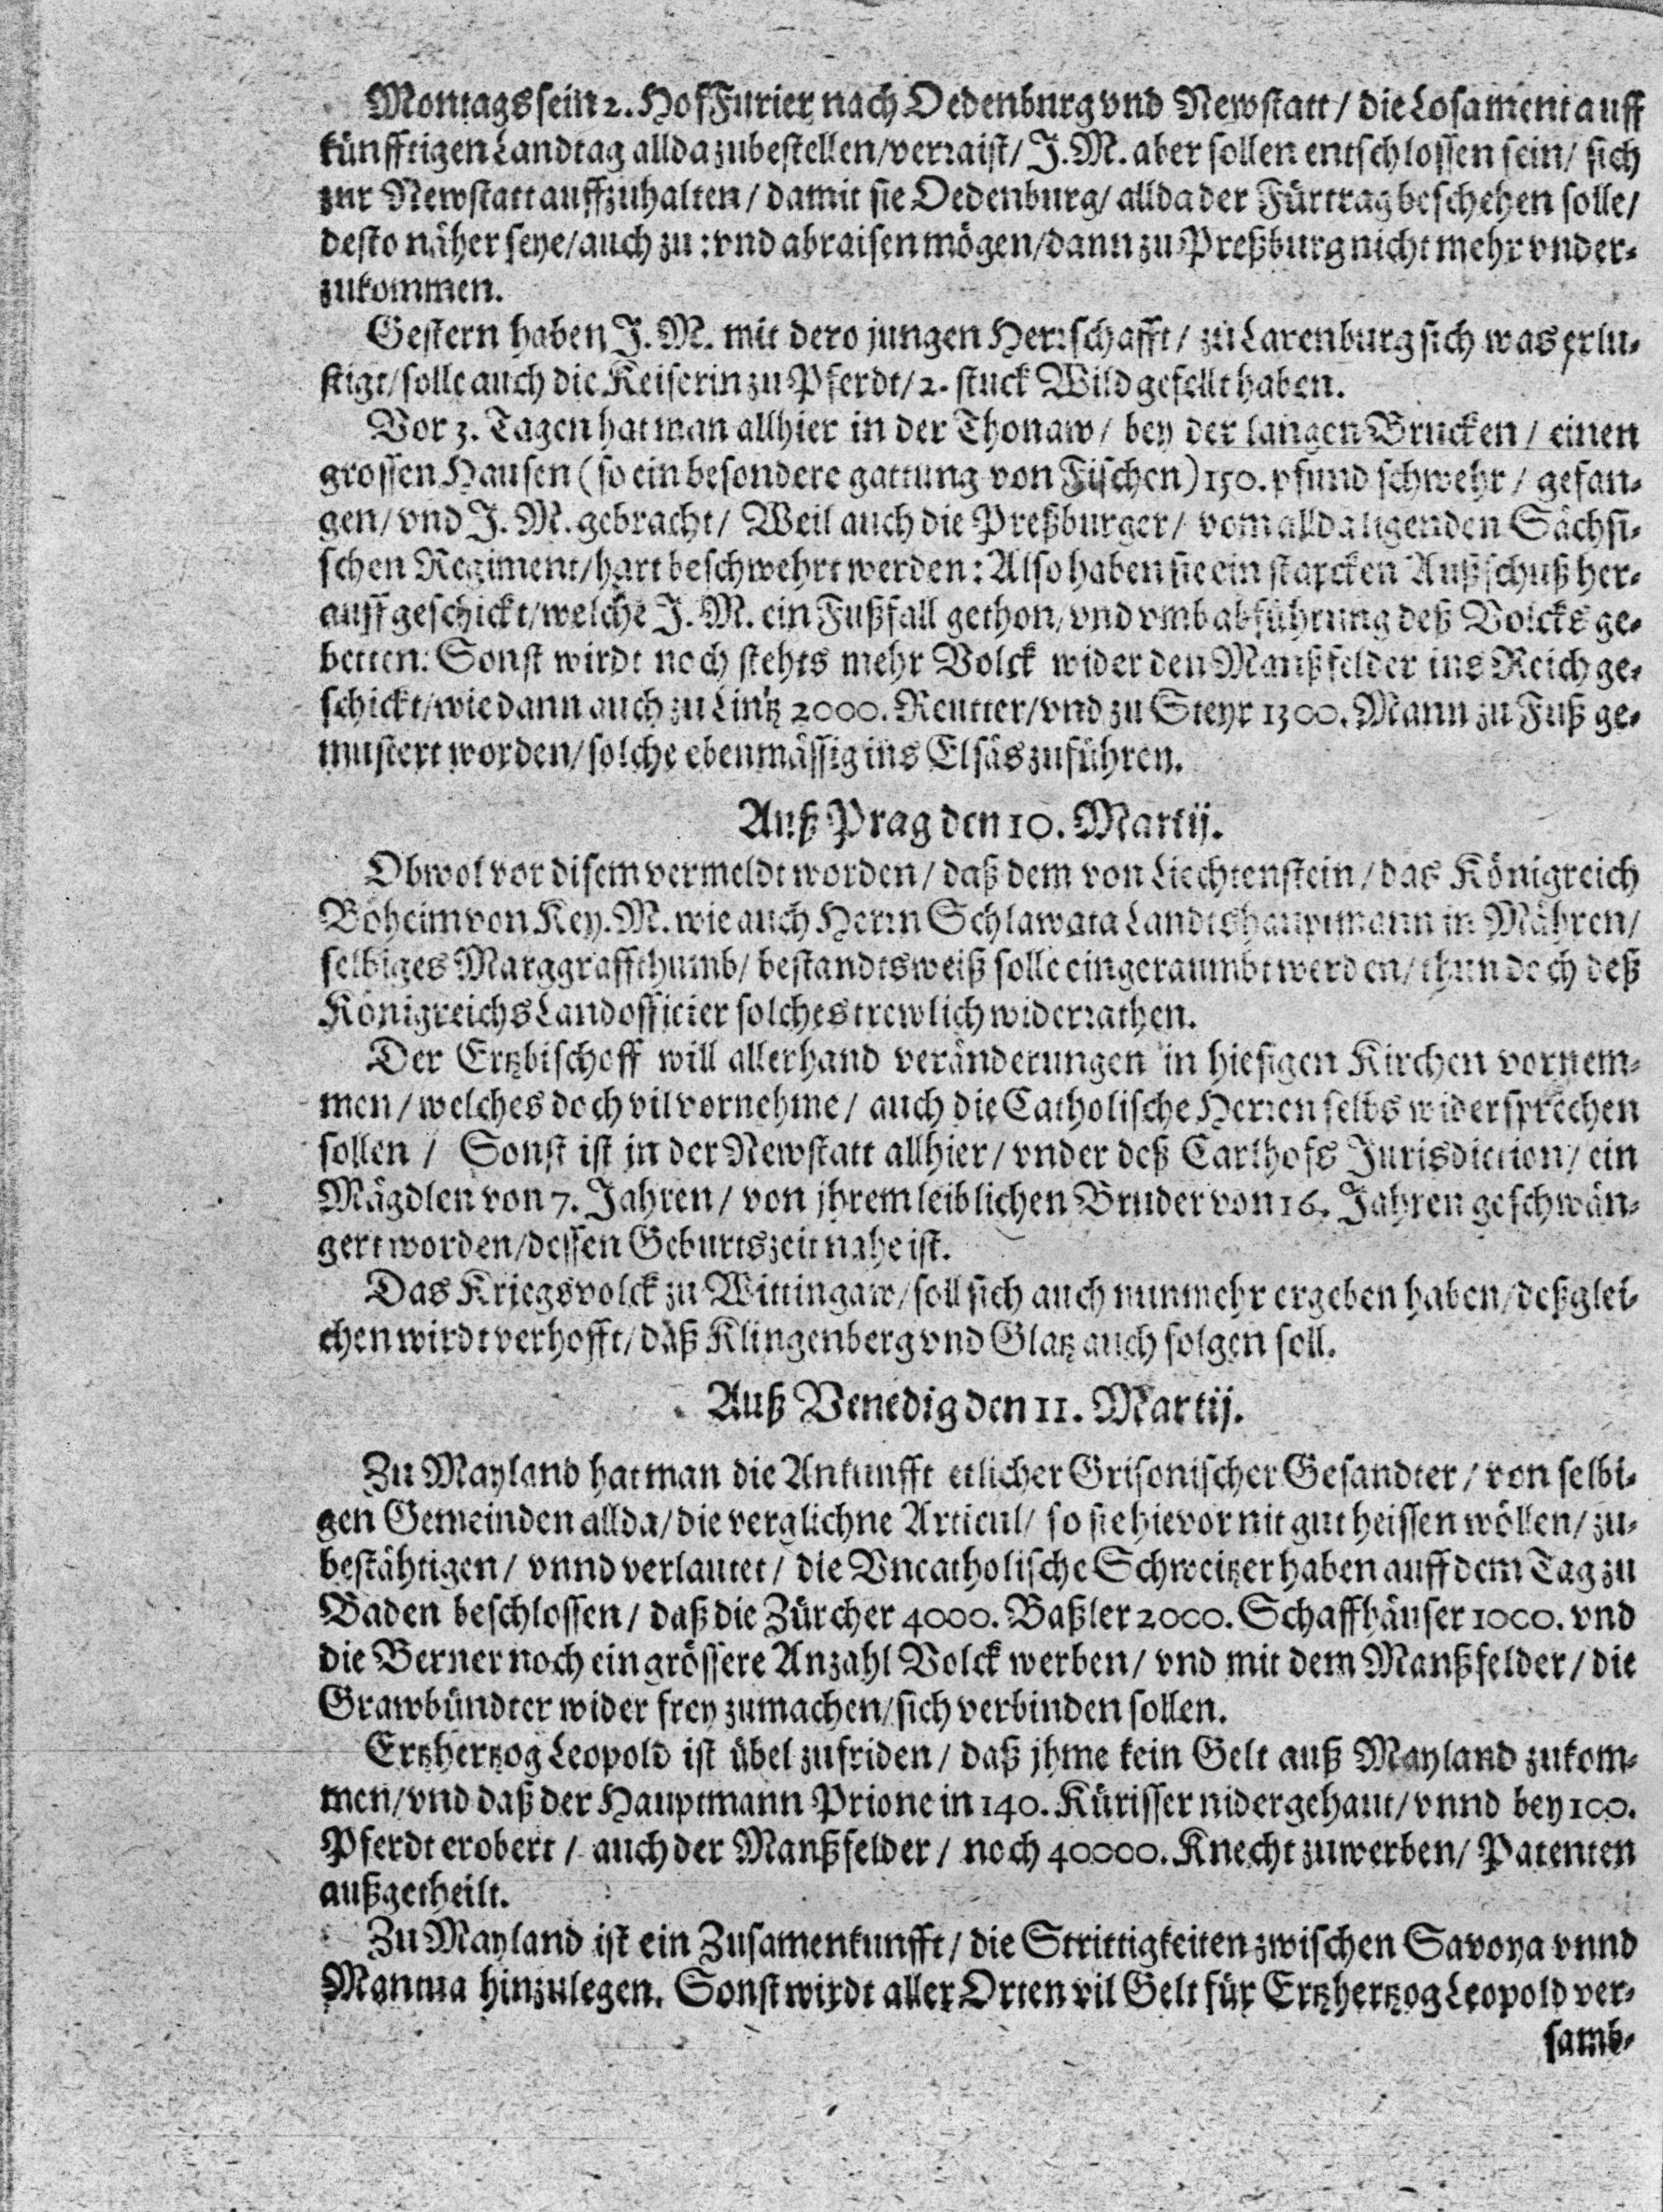 Montags sein 2. HofFurier nach Oedenburg vnd Newstatt / die Losament auff
künfftigen Landtag allda zubestellen / verraist / J. M. aber sollen entschlossen sein / sich
zur Newstatt auffzuhalten / damit sie Oedenburg / allda der Fürtrag beschehen solle /
desto näher seye / auch zu: vnd abraisen mögen / dann zu Preßburg nicht mehr vnder-
zukommen.
Gestern haben J. M. mit dero jungen Herrschafft / zu Laxenburg sich was erlu-
stigt / solle auch die Keiserin zu Pferdt / 2. stuck Wild gefellt haben.
Vor 3. Tagen hat man allhier in der Thonaw / bey der langen Brucken / einen
grossen Hausen (so ein besondere gattung von Fischen) 150. pfund schwehr / gefan-
gen / vnd J. M. gebracht / Weil auch die Preßburger / vom allda ligenden Sächsi-
schen Regiment / hart beschwehrt werden: Also haben sie ein starcken Außschuß her-
auff geschickt / welche J. M. ein Fußfall gethon / vnd vmb abführung deß Volcks ge-
betten: Sonst wirdt noch stehts mehr Volck wider den Manßfelder ins Reich ge-
schickt / wie dann auch zu Lintz 2000. Reutter / vnd zu Steyr 1300. Mann zu Fuß ge-
mustert worden / solche ebenmässig ins Elsäs zuführen.
Auß Prag den 10. Martij.
Obwol vor disem vermeldt worden / daß dem von Liechtenstein / das Königreich
Böheim von Key. M. wie auch Herrn Schlawata Landtshauptmann in Mähren /
selbiges Marggraffthumb / bestandtsweiß solle eingeraumbt werden / thun doch deß
Königreichs Landofficier solches trewlich widerrathen.
Der Ertzbischoff will allerhand veränderungen in hiesigen Kirchen vornem-
men / welches doch vil vornehme / auch die Catholische Herren selbs widersprechen
sollen / Sonst ist in der Newstatt allhier / vnder deß Carlhofs Jurisdiction / ein
Mägdlen von 7. Jahren / von jhrem leiblichen Bruder von 16. Jahren geschwän-
gert worden / dessen Geburtszeit nahe ist.
Das Kriegsvolck zu Wittingaw / soll sich auch nunmehr ergeben haben / deßglei-
chen wirdt verhofft / daß Klingenberg vnd Glatz auch folgen soll.
Auß Venedig den 11. Martij.
Zu Mayland hat man die Ankunfft etlicher Grisonischer Gesandter / von selbi-
gen Gemeinden allda / die verglichne Articul / so sie hievor nit gut heissen wöllen / zu-
bestähtigen / vnnd verlautet / die Vncatholische Schweitzer haben auff dem Tag zu
Baden beschlossen / daß die Zürcher 4000. Baßler 2000. Schaffhäuser 1000. vnd
die Berner noch ein grössere Anzahl Volck werben / vnd mit dem Manßfelder / die
Grawbündter wider frey zumachen / sich verbinden sollen.
Ertzhertzog Leopold ist übel zufriden / daß jhme kein Gelt auß Mayland zukom-
men / vnd daß der Hauptmann Prione in 140. Kürisser nidergehaut / vnnd bey 100.
Pferdt erobert / auch der Manßfelder / noch 40000. Knecht zuwerben / Patenten
außgetheilt.
Zu Mayland ist ein Zusamenkunfft / die Strittigkeiten zwischen Savoya vnnd
Mantua hinzulegen. Sonst wirdt aller Orten vil Gelt für Ertzhertzog Leopold ver-
samb-